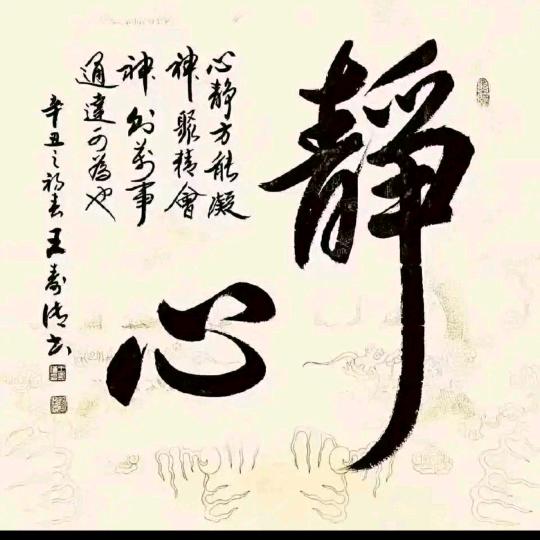 靜心
心靜方能凝
神聚精會
神則萬事
通達可為也
辛丑之初春王壽清书